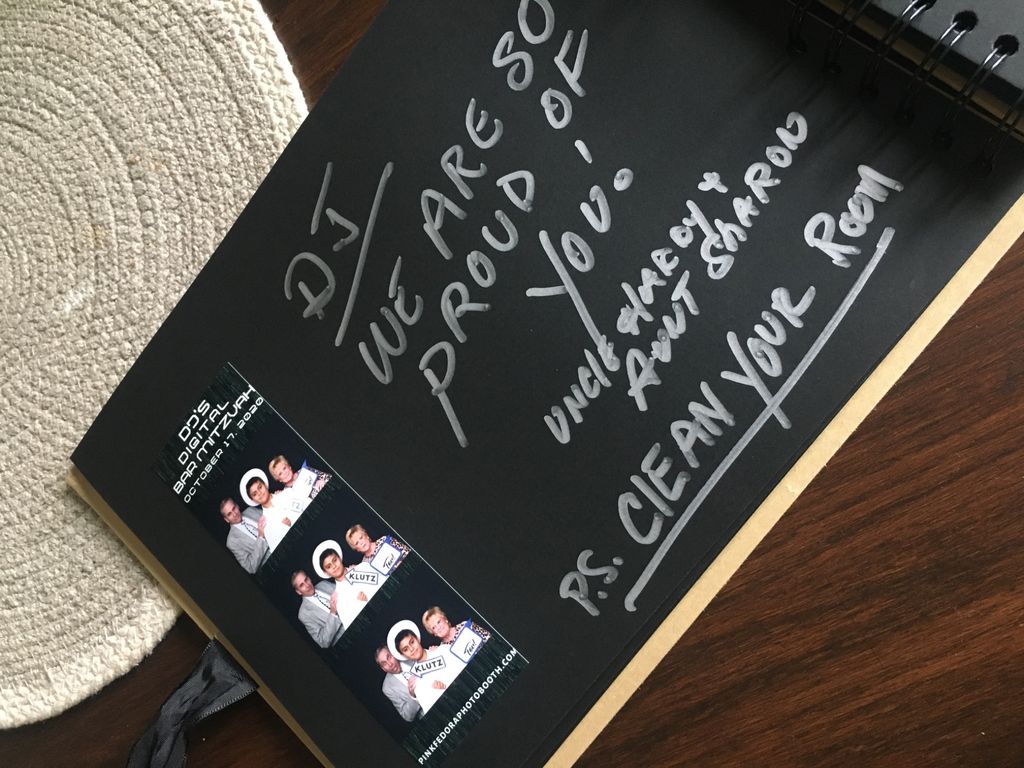 DJ
WE ARE SO
PROUD OF
YOU!
UNCLE HARDY +
AUNT SHARON
P.S. CLEAN YOUR ROOM
DJ'S
DIGITAL
BAR MITZVAH
OCTOBER 17, 2020
KLUTZ
KLUTZ
PINKFEDORAPHOTOBOOTH.COM